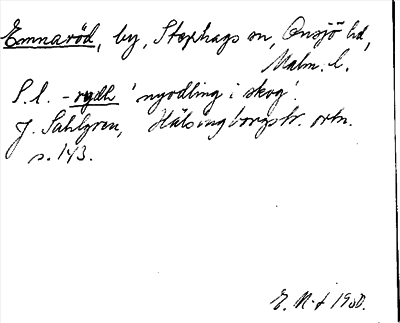 Emmaröd, by, Stephags sn, Onsjö hd,
Malm. l.
S.l. -rydh 'nyodling i skog'.
J. Sahlgren, Hälsingborgstr. ortn.
s. 143.
1950.